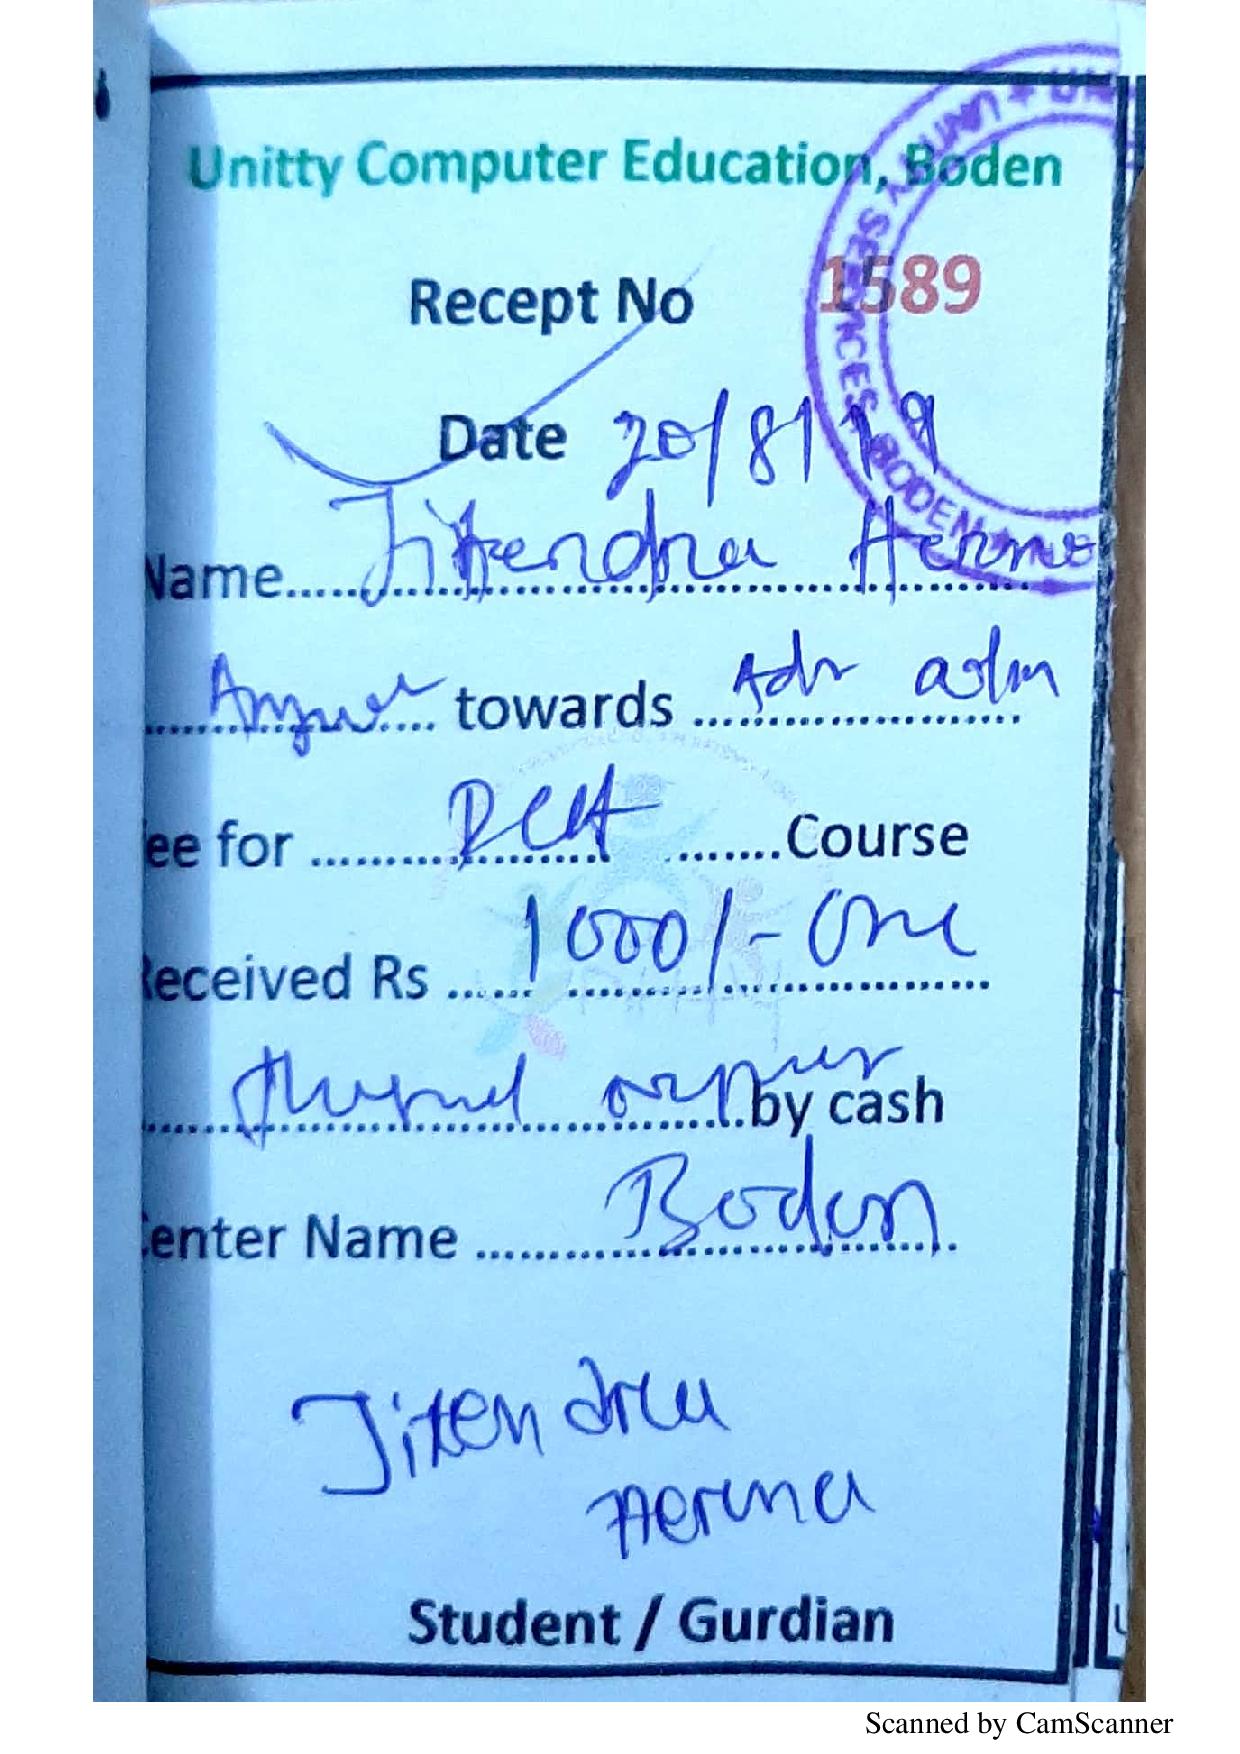 Unitty Computer Education, Boden
Recept No 1589
Date 20/8/19
Name..... Jitendra Herna
towards Adv adm
ee for DCA Course
Received Rs 1000/- One
by cash
enter Name Boden
Jitendra
Herna
Student / Gurdian
UNITTY SERVICES, BODEN
Scanned by CamScanner